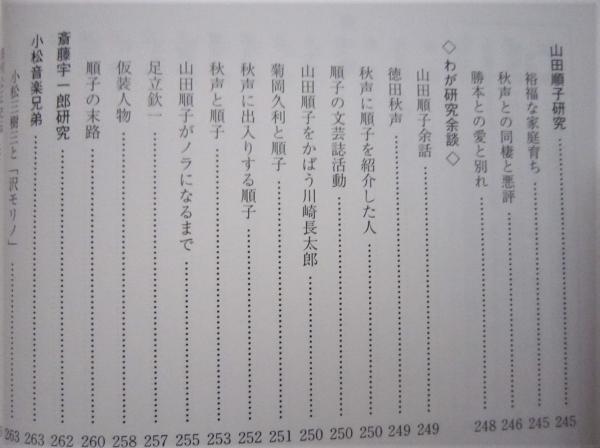 山田順子研究……245
裕福な家庭育ち……245
秋声との同棲と悪評……246
勝本との愛と別れ……248
◇わが研究余談◇
山田順子余話……249
徳田秋声……249
秋声に順子を紹介した人……250
順子の文芸誌活動……250
山田順子をかばう川崎長太郎……250
菊岡久利と順子……251
秋声に出入りする順子……252
秋声と順子……253
山田順子がノラになるまで……255
足立欽一……257
仮装人物……258
順子の末路……260
斎藤宇一郎研究……262
小松音楽兄弟……263
小松三樹三と「沢モリノ」……263